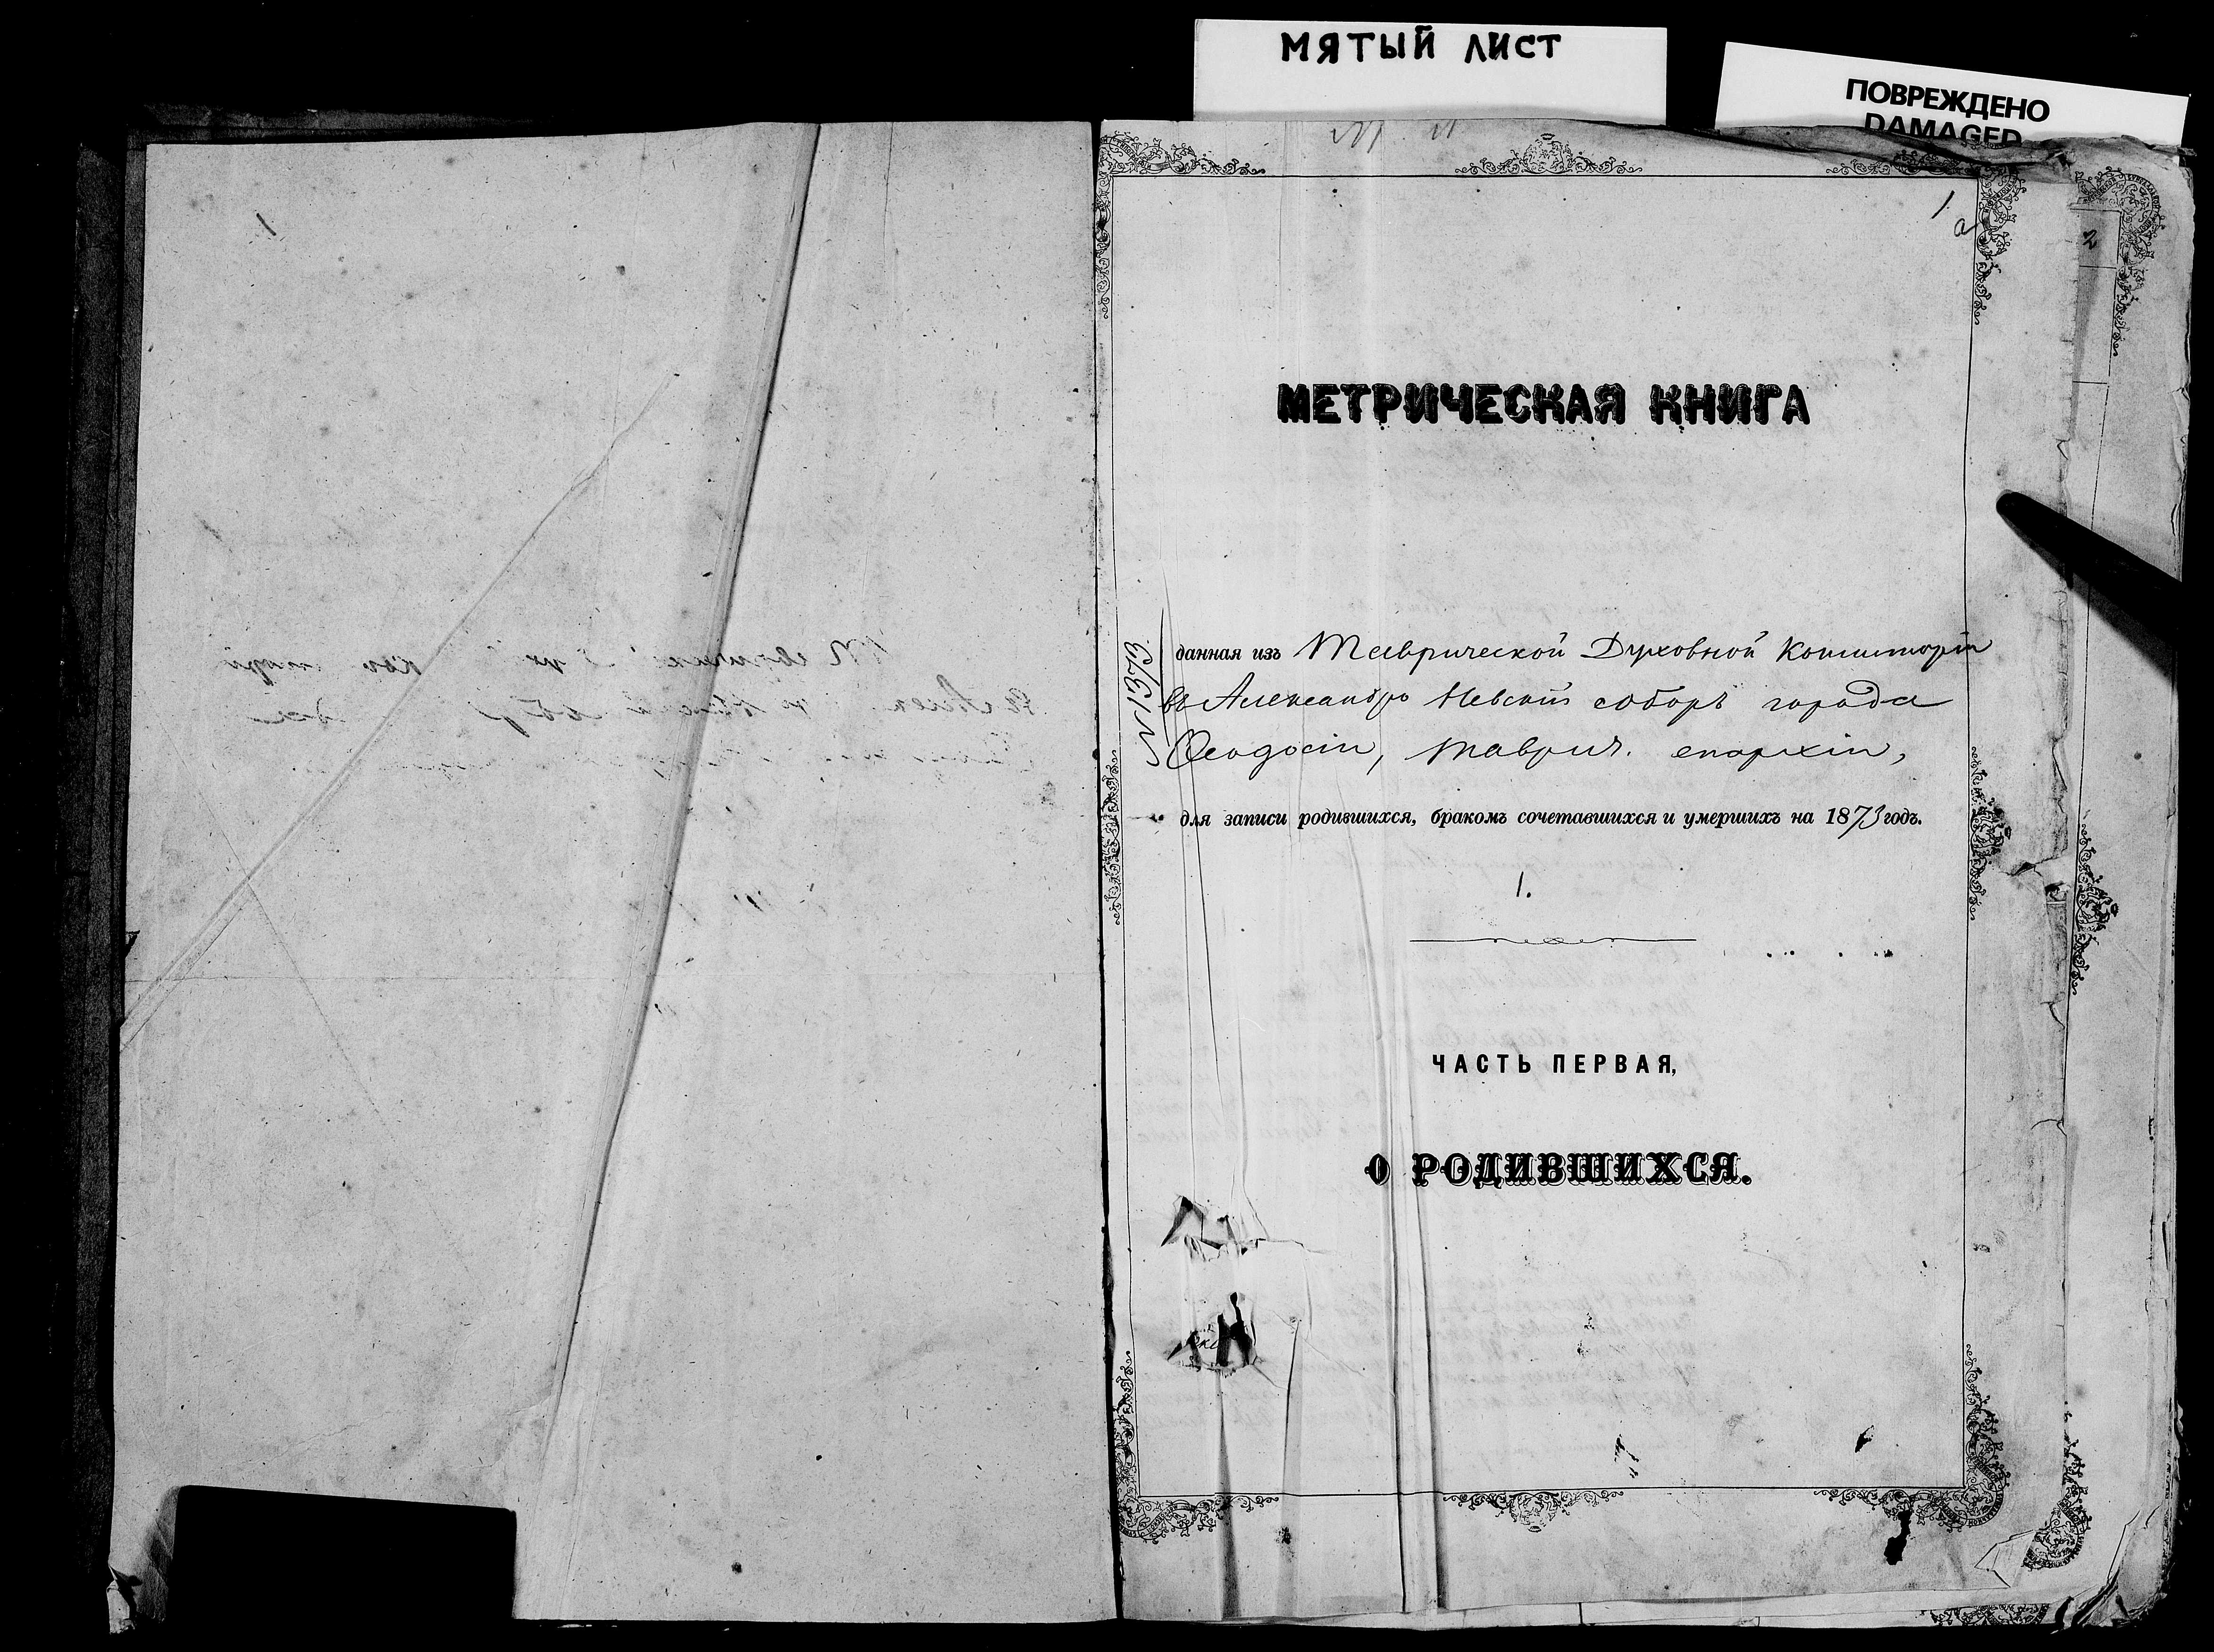 МЯТЫЙ ЛИСТ
ПОВРЕЖДЕНО
DAMAGED
1
1
а
2
МЕТРИЧЕСКАЯ КНИГА
№ 1373.
данная изъ Таврической Духовной Консисторіи
въ Александро Невскій соборъ города
Ѳеодосіи, Таврич. епархіи,
для записи родившихся, бракомъ сочетавшихся и умершихъ на 1873 годъ.
1.
ЧАСТЬ ПЕРВАЯ,
О РОДИВШИХСЯ.